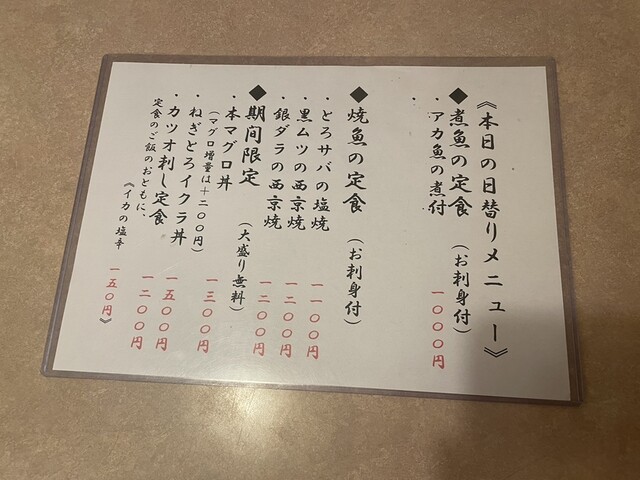 《本日の日替りメニュー》
◆煮魚の定食（お刺身付）
・アカ魚の煮付 一〇〇〇円
・
◆焼魚の定食（お刺身付）
・とろサバの塩焼 一一〇〇円
・黒ムツの西京焼 一二〇〇円
・銀ダラの西京焼 一二〇〇円
◆期間限定（大盛り無料）
・本マグロ丼 一三〇〇円
（マグロ増量は＋二〇〇円）
・ねぎとろイクラ丼 一五〇〇円
・カツオ刺し定食 一二〇〇円
定食のご飯のおともに、
《イカの塩辛 一五〇円》